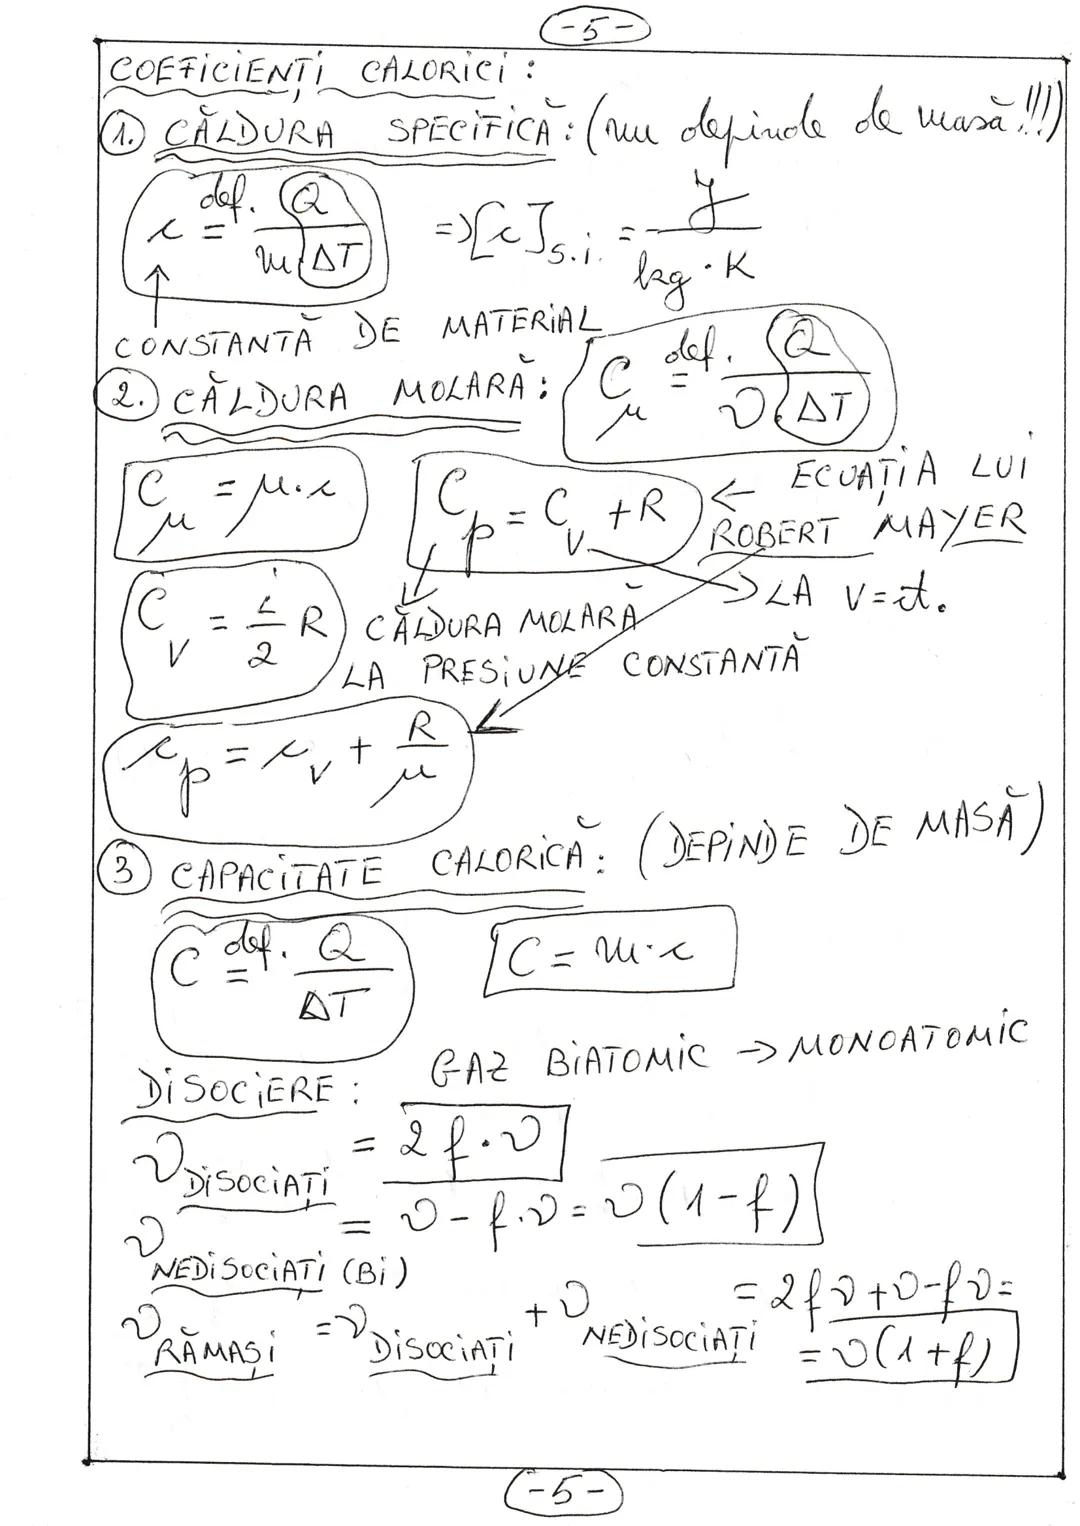 -5-
COEFICIENȚI CALORICI:
1. CĂLDURA SPECIFICĂ: (nu depinde de masă!!!)
c def.= Q/(m·ΔT) => [c]S.i. = J/(kg·K)
CONSTANTĂ DE MATERIAL
2. CĂLDURA MOLARĂ: Cμ def.= Q/(ν·ΔT)
Cμ = μ·c Cp = Cv + R ← ECUAȚIA LUI
ROBERT MAYER
→ LA V=ct.
Cv = i/2 R CĂLDURA MOLARĂ
LA PRESIUNE CONSTANTĂ
cp = cv + R/μ
3 CAPACITATE CALORICĂ: (DEPINDE DE MASĂ)
C def.= Q/ΔT C = m·c
DISOCIERE: GAZ BIATOMIC → MONOATOMIC
ν DISOCIAȚI = 2f·ν
ν NEDISOCIAȚI (Bi) = ν - f·ν = ν(1-f)
ν RĂMAȘI = ν DISOCIAȚI + ν NEDISOCIAȚI = 2fν+ν-fν=
=ν(1+f)
-5-